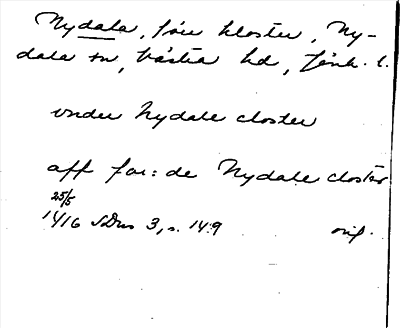 Nydala, förr kloster, Ny-
dala sn, Västra hd, Jönk. l.
under Nydale closter
aff for:de Nydale closter
25/5
1416 SDns 3, s. 149 orig.